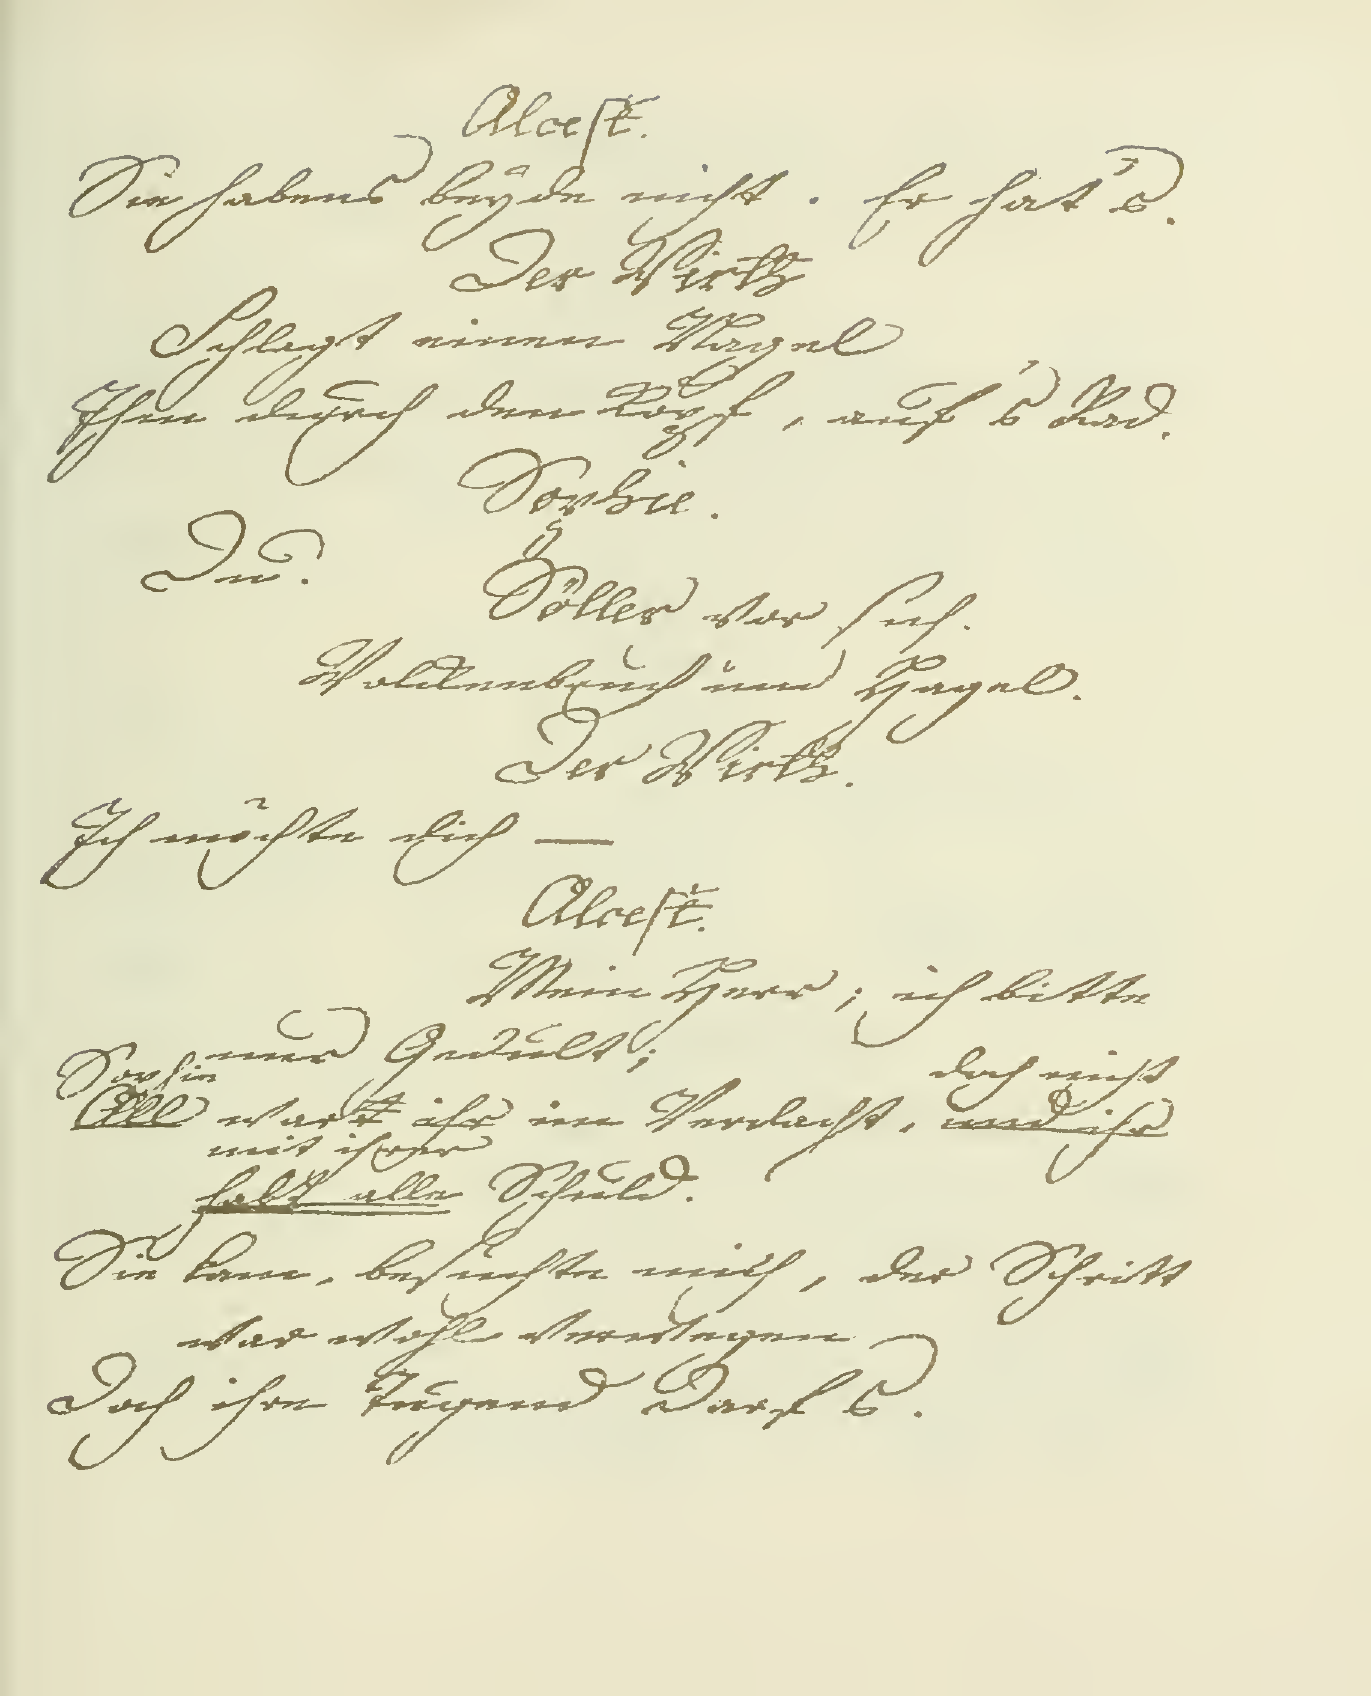 Alcest.
Sie habens beyde nicht. Er hat's.
Der Wirth
Schlagt einen Nagel
Ihm durch den Kopf, auf's Rad.
Sophie.
Du?
Söller vor sich.
Wolckenbruch und Hagel.
Der Wirth.
Ich möchte dich —
Alcest.
Mein Herr; ich bitte
nur Gedult;
Sophie doch nicht
All wart ihr im Verdacht, und ihr
mit ihrer
habt alle Schuld.
Sie kam, besuchte mich, der Schritt
war wohl verwegen
Doch ihre Tugend darf's.